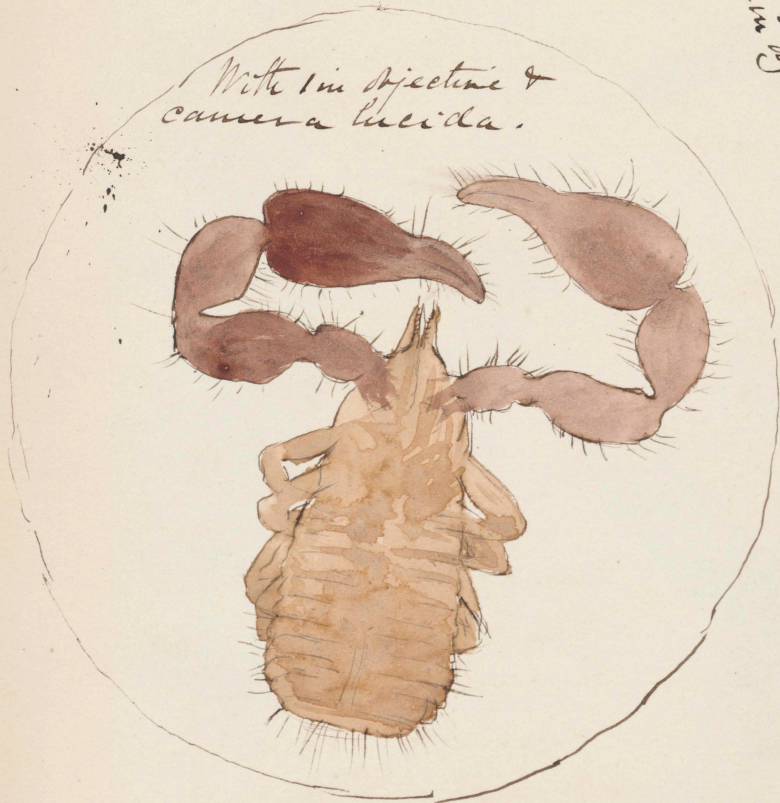 With 1 in objective &
camera lucida.